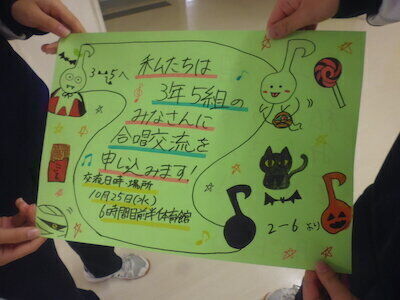 3-5へ
私たちは
3年5組の
みなさんに
合唱交流を
申し込みます!
交流日時・場所
10月25日(水)
6時間目前半体育館
2-6より